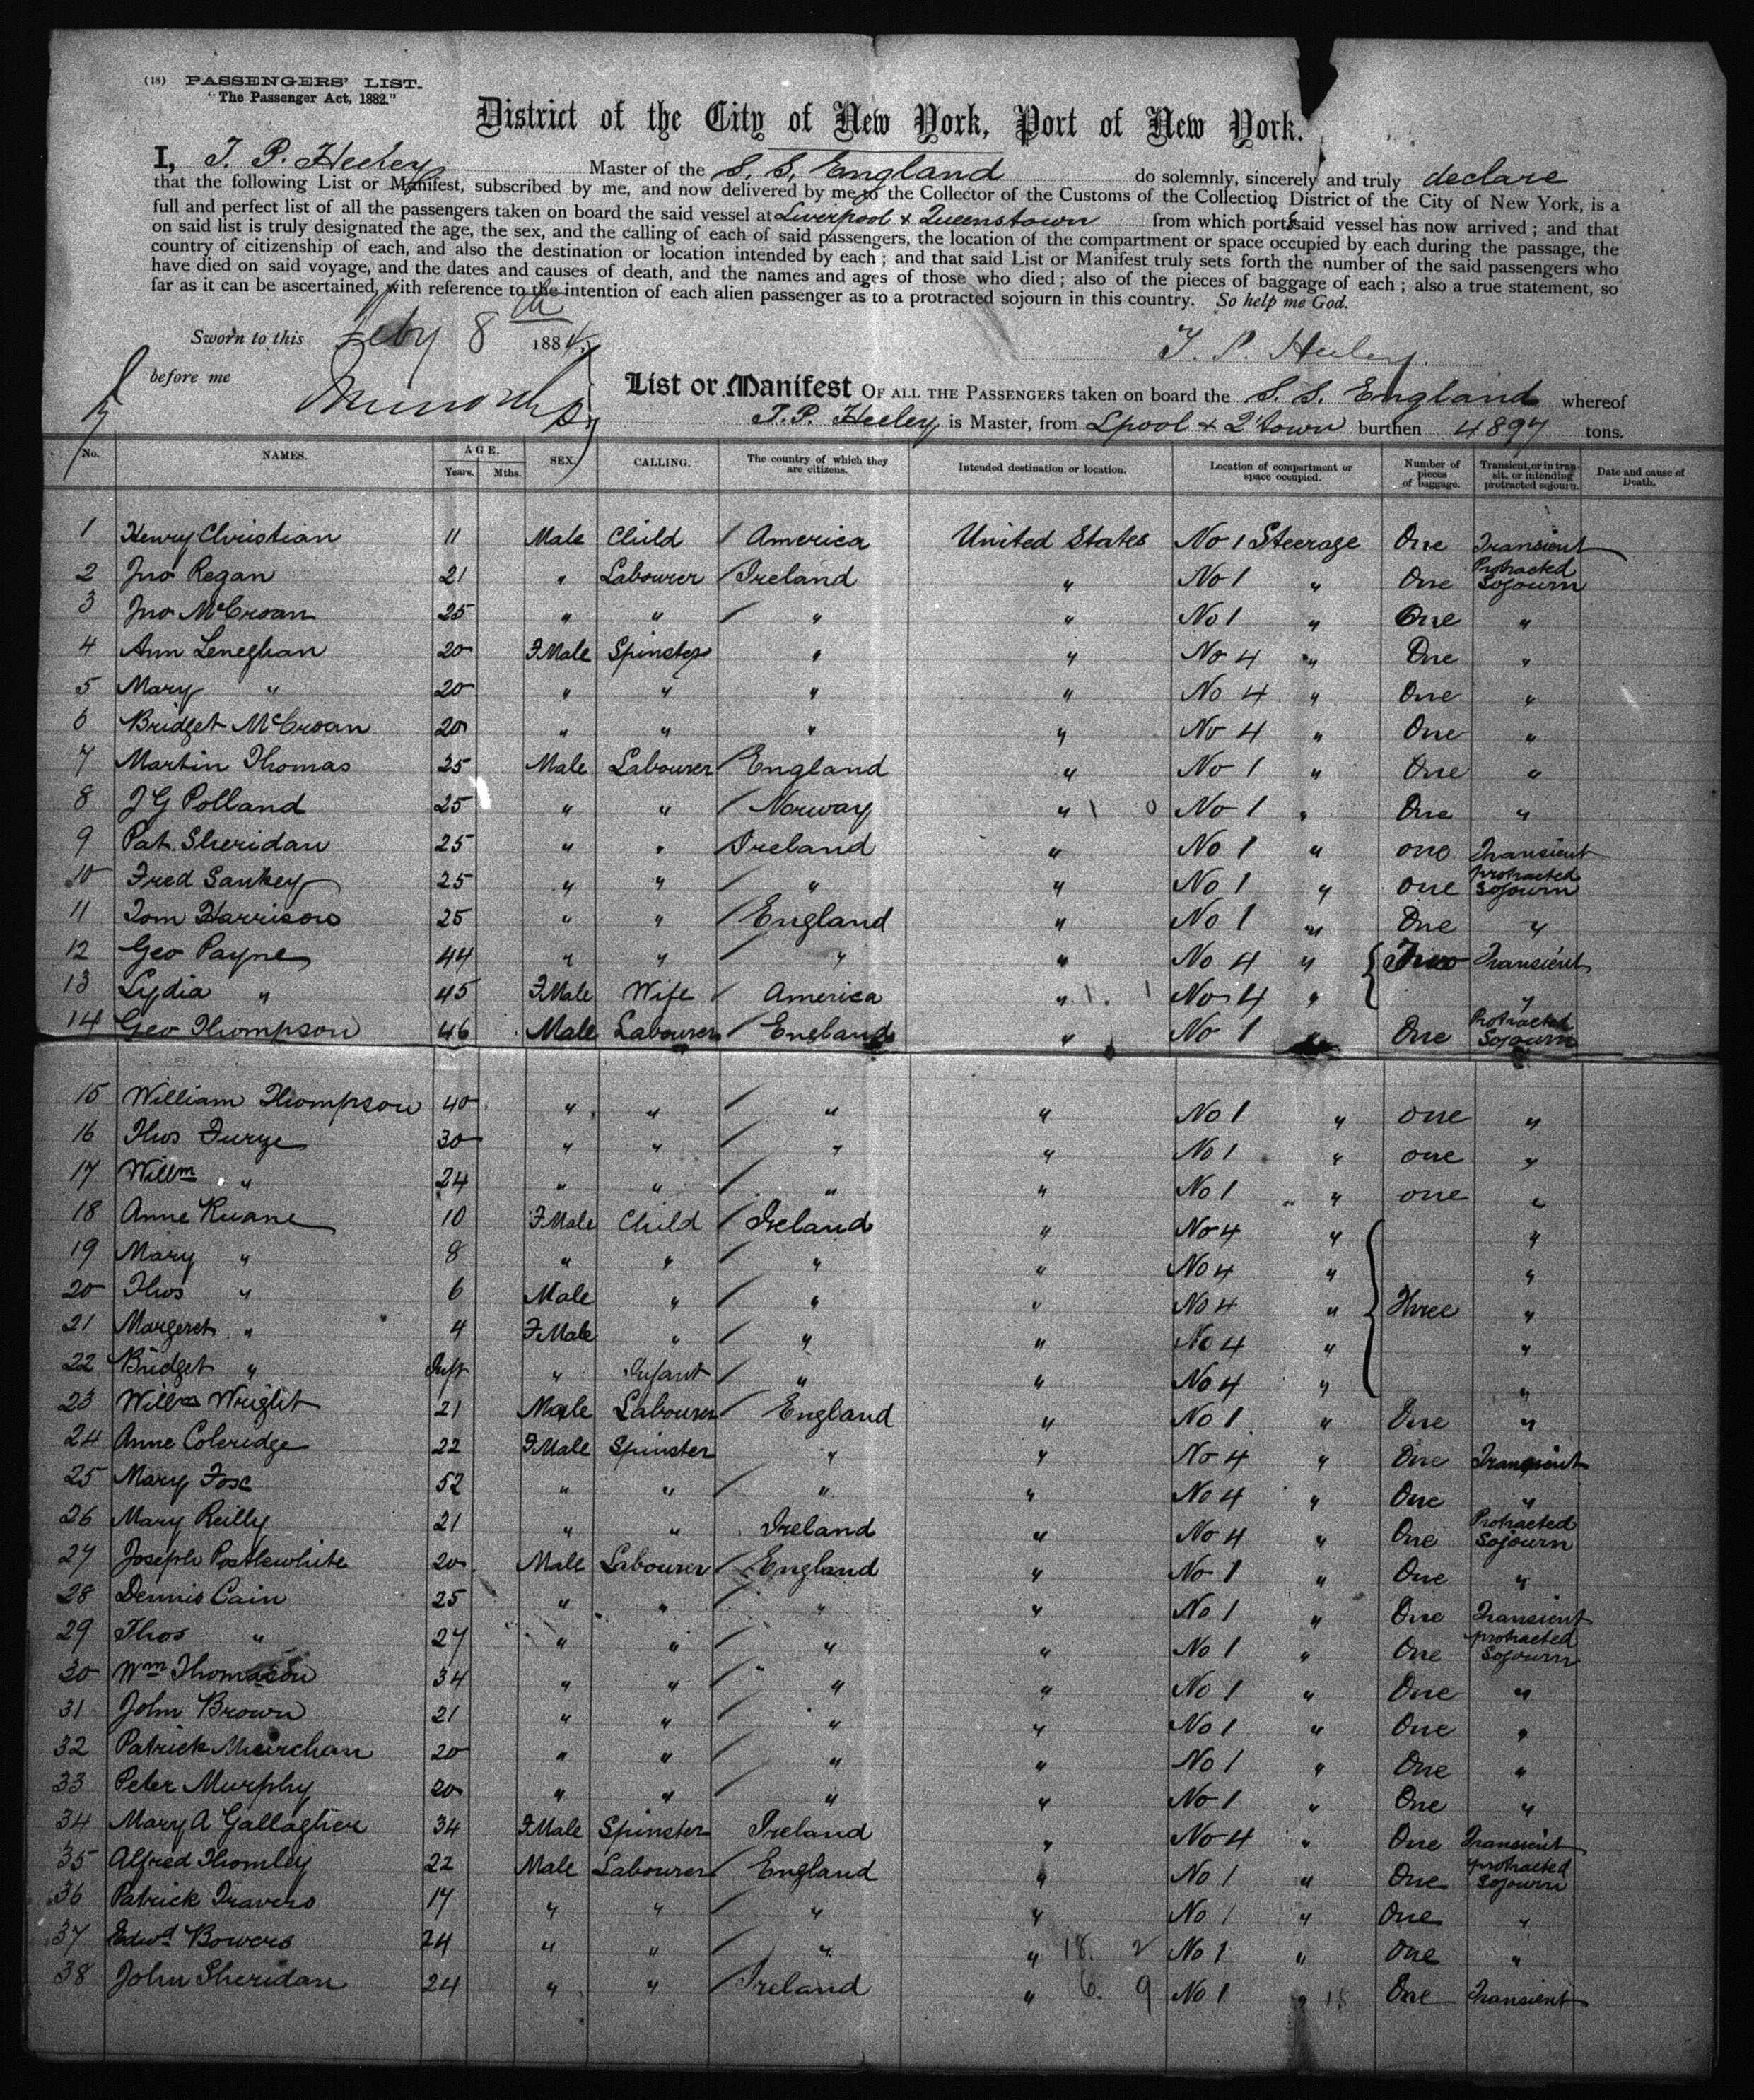 (18) PASSENGERS' LIST.
"The Passenger Act, 1882."
District of the City of New York, Port of New York.
I, T. P. Heeley Master of the S. S. England do solemnly, sincerely and truly declare
that the following List or Manifest, subscribed by me, and now delivered by me to the Collector of the Customs of the Collection District of the City of New York, is a
full and perfect list of all the passengers taken on board the said vessel at Liverpool & Queenstown from which ports said vessel has now arrived; and that
on said list is truly designated the age, the sex, and the calling of each of said passengers, the location of the compartment or space occupied by each during the passage, the
country of citizenship of each, and also the destination or location intended by each; and that said List or Manifest truly sets forth the number of the said passengers who
have died on said voyage, and the dates and causes of death, and the names and ages of those who died; also of the pieces of baggage of each; also a true statement, so
far as it can be ascertained, with reference to the intention of each alien passenger as to a protracted sojourn in this country. So help me God.
Sworn to this Feby 8th 1884
T. P. Heeley
before me
List or Manifest OF ALL THE PASSENGERS taken on board the S. S. England whereof
T. P. Heeley is Master, from Lpool & Q'town burthen 4897 tons.
No. NAMES. AGE. Years. Mths. SEX. CALLING. The country of which they are citizens. Intended destination or location. Location of compartment or space occupied. Number of pieces of baggage. Transient, or in transit, or intending protracted sojourn. Date and cause of Death.
1 Henry Christian 11 Male Child / America United States No 1 Steerage One Transient
2 Jno Regan 21 " Labourer / Ireland " No 1 " One Protracted Sojourn
3 Jno McCroan 25 " " / " " No 1 " One "
4 Ann Leneghan 20 FMale Spinster " " No 4 " One "
5 Mary " 20 " " " " No 4 " One "
6 Bridget McCroan 20 " " " " No 4 " One "
7 Martin Thomas 25 Male Labourer / England " No 1 " One "
8 J G Polland 25 " " / Norway " No 1 " One "
9 Pat. Sheridan 25 " " Ireland " No 1 " one Transient
10 Fred Sankey 25 " " / " " No 1 " one protracted Sojourn
11 Tom Harrison 25 " " / England " No 1 " One "
12 Geo Payne 44 " " / " " No 4 " Two Transient
13 Lydia " 45 FMale Wife / America " No 4 " "
14 Geo Thompson 46 Male Labourer / England " No 1 " One Protracted Sojourn
15 William Thompson 40 " " / " " No 1 " one "
16 Thos Furye 30 " " / " " No 1 " one "
17 Willm " 24 " " / " " No 1 " one "
18 Anne Ruane 10 FMale Child / Ireland " No 4 " "
19 Mary " 8 " " / " " No 4 " "
20 Thos " 6 Male " / " " No 4 " Three "
21 Margeret " 4 FMale " / " " No 4 " "
22 Bridget " Inft " Infant / " " No 4 " "
23 Willm Wright 21 Male Labourer / England " No 1 " One "
24 Anne Coleridge 22 FMale Spinster " " No 4 " One Transient
25 Mary Fox 52 " " / " " No 4 " One "
26 Mary Reilly 21 " " Ireland " No 4 " One Protracted Sojourn
27 Joseph Postlewhite 20 Male Labourer / England " No 1 " One "
28 Dennis Cain 25 " " / " " No 1 " One Transient
29 Thos " 27 " " / " " No 1 " One protracted Sojourn
30 Wm Thomason 34 " " / " " No 1 " One "
31 John Brown 21 " " / " " No 1 " One "
32 Patrick 20 " " / " " No 1 " One "
33 Peter Murphy 20 " " / " " No 1 " One "
34 Mary A Gallagher 34 FMale Spinster Ireland " No 4 " One Transient
35 Alfred Thomley 22 Male Labourer / England " No 1 " One protracted Sojourn
36 Patrick Travers 17 " " / " " No 1 " One "
37 Edwd Bowers 24 " " / " " 18. 2 No 1 " One "
38 John Sheridan 24 " " / Ireland " 6. 9 No 1 " One Transient